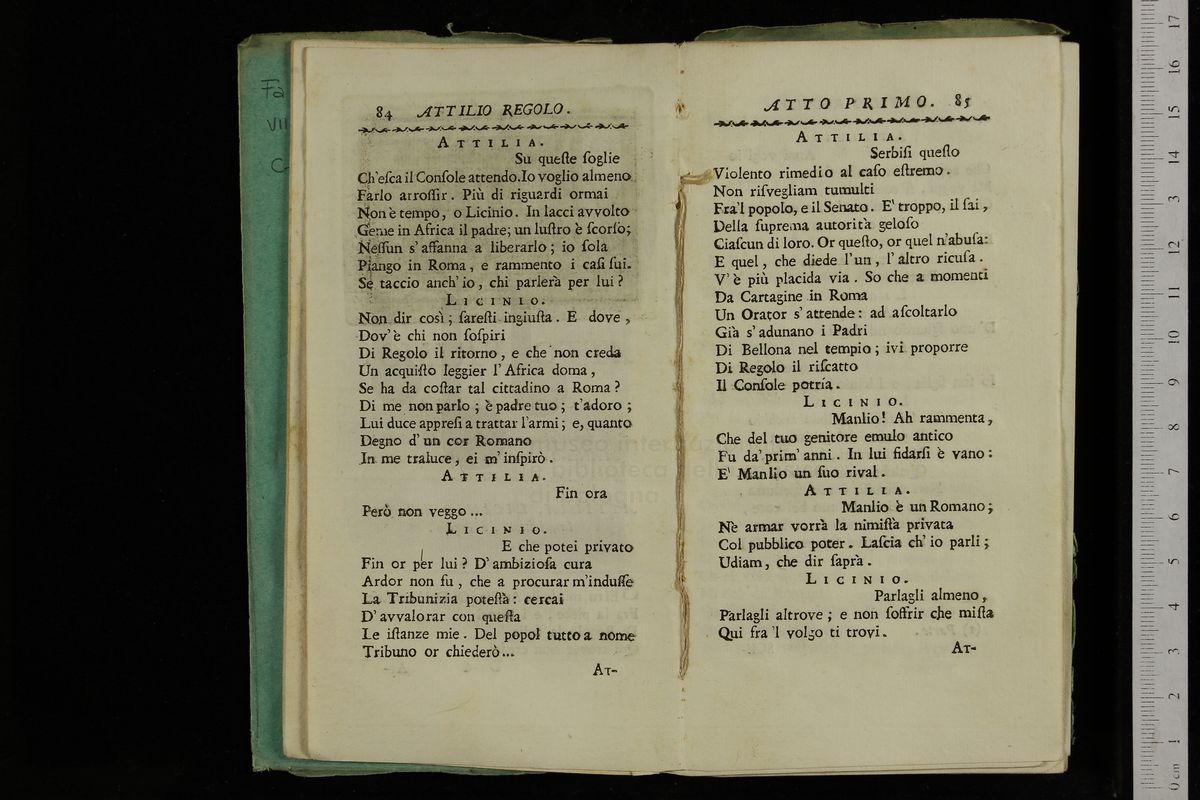 84 ATTILIO REGOLO.
ATTILIA.
Su queſte ſoglie
Ch'eſca il Conſole attendo. Io voglio almeno
Farlo arroſſir. Più di riguardi ormai
Non è tempo, o Licinio. In lacci avvolto
Geme in Africa il padre; un luſtro è ſcorſo;
Neſſun s' affanna a liberarlo; io ſola
Piango in Roma, e rammento i caſi ſui.
Se taccio anch' io, chi parlerà per lui?
LICINIO.
Non dir così; fareſti ingiuſta. E dove,
Dov' è chi non ſoſpiri
Di Regolo il ritorno, e che non creda
Un acquiſto leggier l' Africa doma,
Se ha da coſtar tal cittadino a Roma?
Di me non parlo; è padre tuo; t'adoro;
Lui duce appreſi a trattar l'armi; e, quanto
Degno d' un cor Romano
In me traluce, ei m' inſpirò.
ATTILIA.
Fin ora
Però non veggo ...
LICINIO.
E che potei privato
Fin or per lui? D' ambizioſa cura
Ardor non fu, che a procurar m'induſſe
La Tribunizia poteſtà: cercai
D' avvalorar con queſta
Le iſtanze mie. Del popol tutto a nome
Tribuno or chiederò...
AT-
ATTO PRIMO. 85
ATTILIA.
Serbiſi queſto
Violento rimedio al caſo eſtremo.
Non riſvegliam tumulti
Fra'l popolo, e il Senato. E' troppo, il ſai,
Della ſuprema autorità geloſo
Ciaſcun di loro. Or queſto, or quel n'abuſa:
E quel, che diede l' un, l' altro ricuſa.
V' è più placida via. So che a momenti
Da Cartagine in Roma
Un Orator s' attende: ad aſcoltarlo
Già s' adunano i Padri
Di Bellona nel tempio; ivi proporre
Di Regolo il riſcatto
Il Conſole potria.
LICINIO.
Manlio! Ah rammenta,
Che del tuo genitore emulo antico
Fu da' prim' anni. In lui fidarſi è vano:
E' Manlio un ſuo rival.
ATTILIA.
Manlio è un Romano;
Nè armar vorrà la nimiſtà privata
Col pubblico poter. Laſcia ch' io parli;
Udiam, che dir ſaprà.
LICINIO.
Parlagli almeno,
Parlagli altrove; e non ſoffrir che miſta
Qui fra 'l volgo ti trovi.
AT-